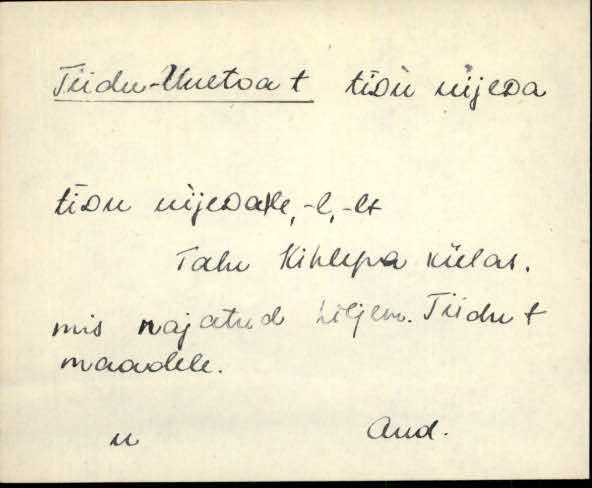 Tiidu-Uuetoa t tiᴅù ùijeᴅa
tiᴅu ùijeᴅalle, -l, -lt
Talu Kihlepa külas.
mis rajatud hiljem Tiidu t
maadele.
u Aud.